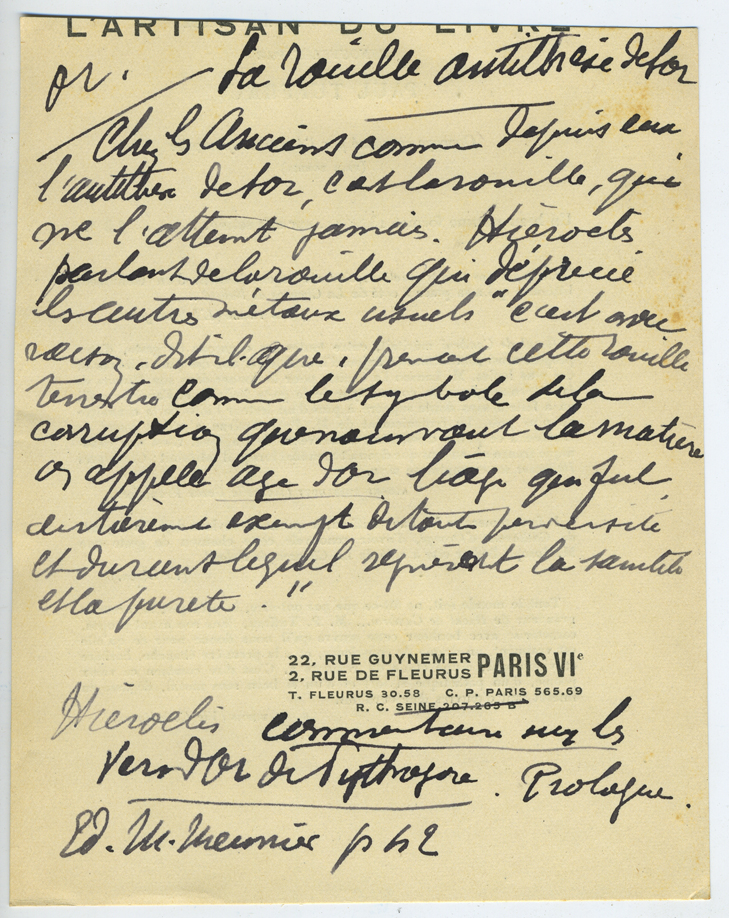 L'ARTISAN DU LIVRE
or.
La rouille antithèse de l'or
Chez les Anciens comme depuis eux
l'antithèse de l'or, c'est la rouille, qui
ne l'atteint jamais. Hiéroclès
parlant de la rouille qui déprécie
les autres métaux usuels "c'est avec
raison, dit-il, que, prenant cette rouille
terrestre comme le symbole de la
corruption que nourrit la matière
on appelle age d'or l'âge qui fut
entièrement exempt de toute perversité
et durant lequel régnèrent la sainteté
et la pureté."
22, RUE GUYNEMER
2, RUE DE FLEURUS PARIS VIe
T. FLEURUS 30.58 C. P. PARIS 565.69
R. C. SEINE 207.265 B
Hiéroclès commentaire sur les
Vers d'Or de Pythagore. Prologue.
Ed. M. Meunier p 42